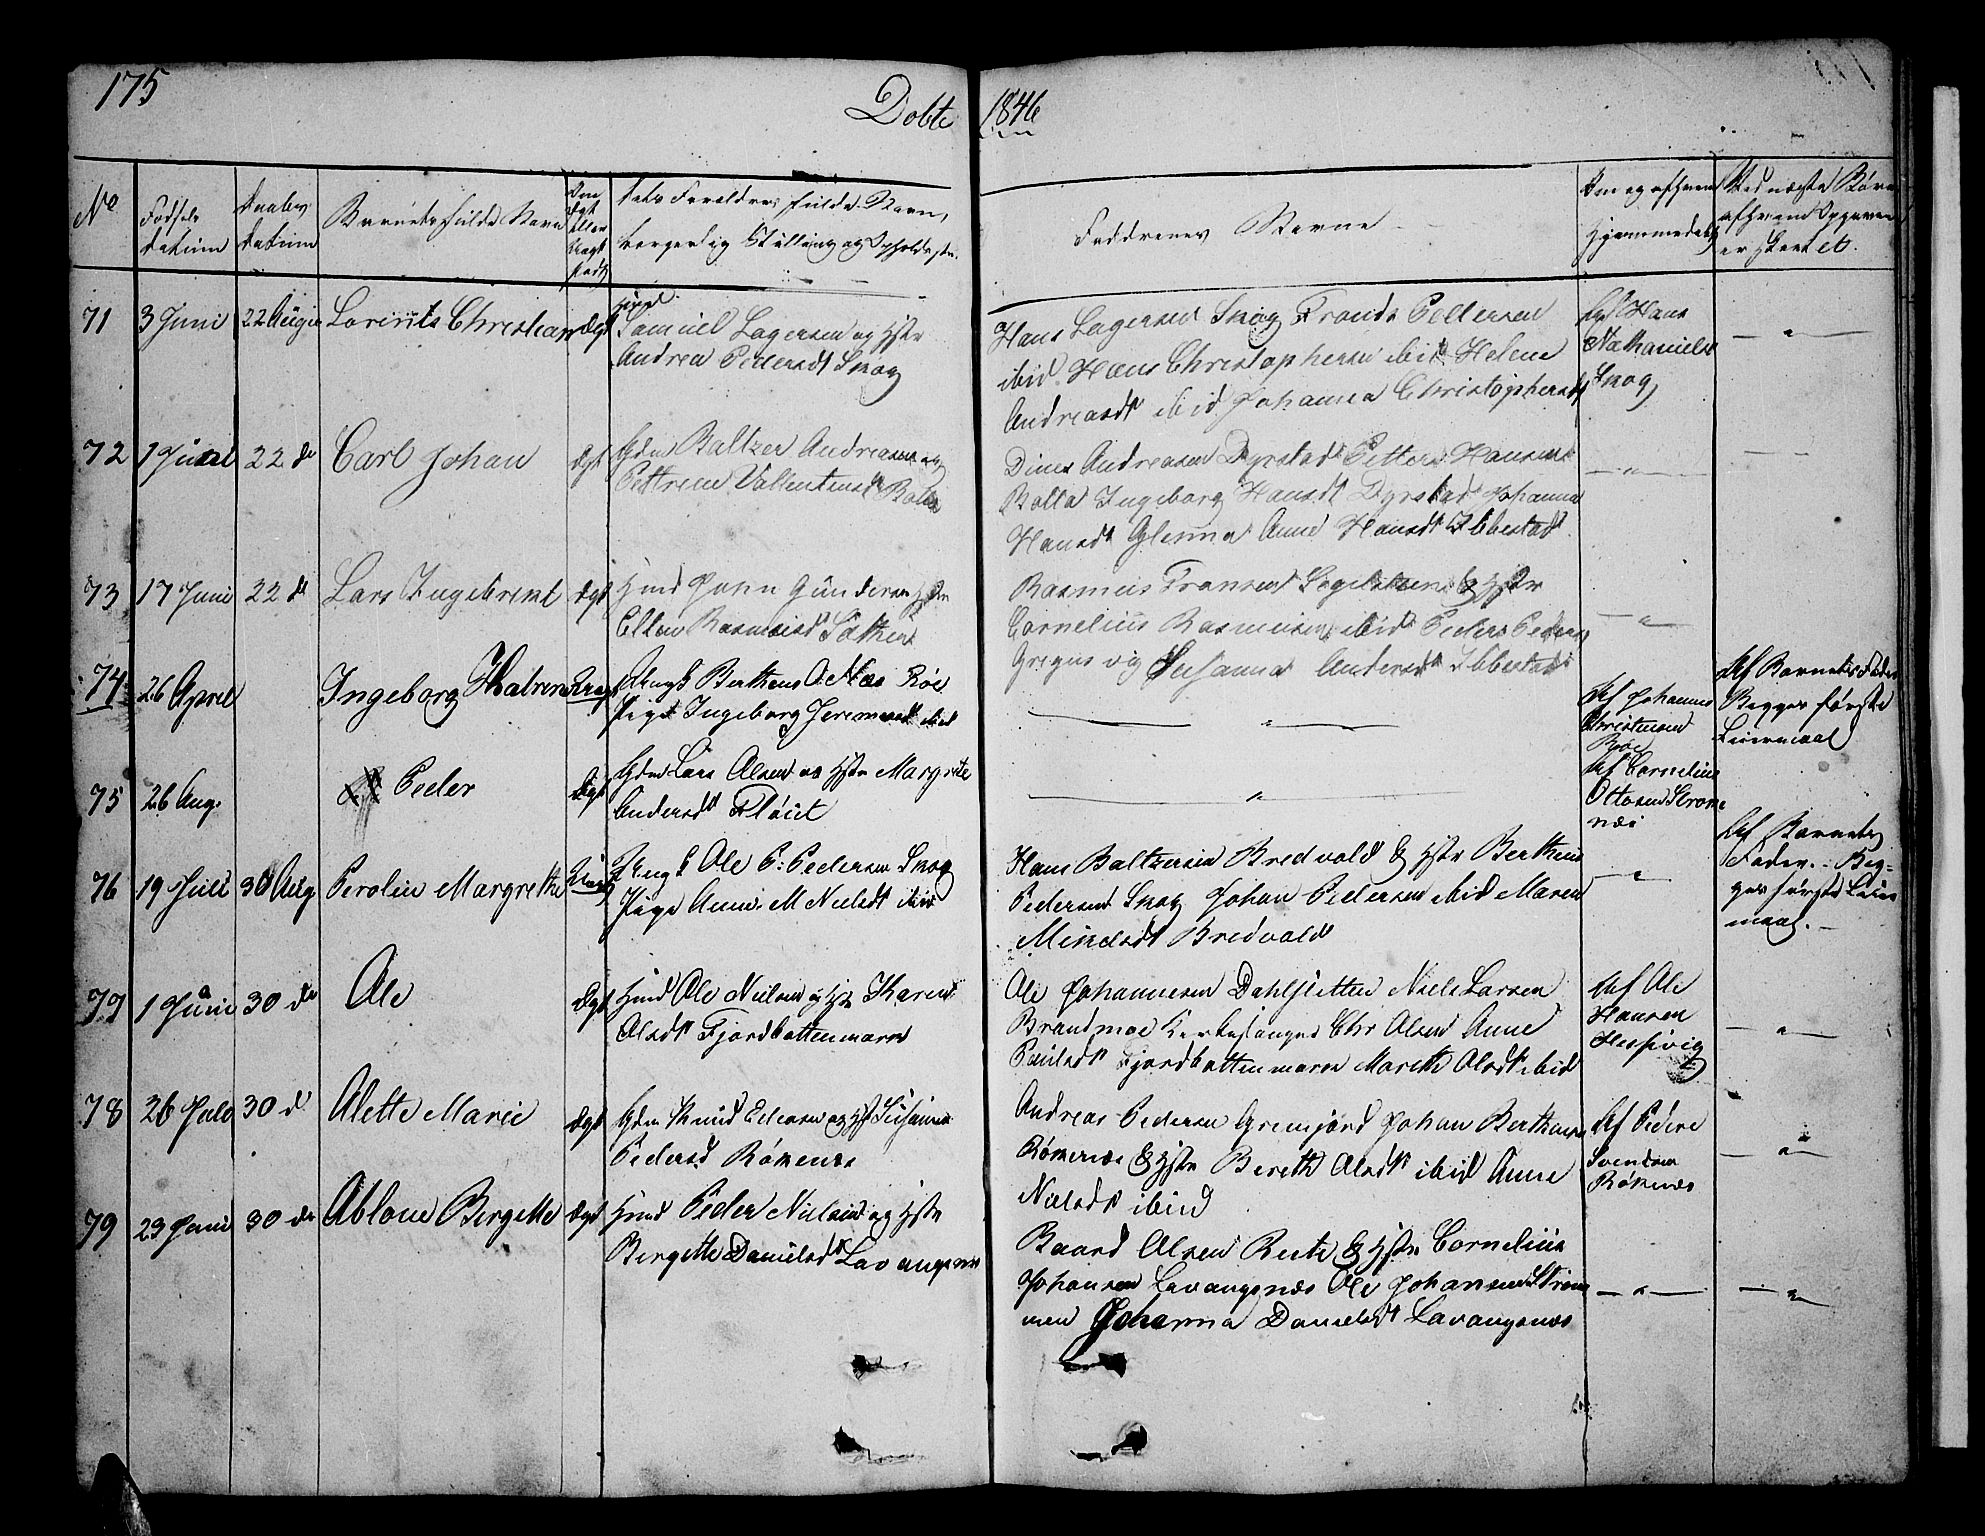 175
Døbte 1846
No
Fødsels Datum
Daabs Datum
Barnets fulde Navn
Om Ægte eller Uægte født
dets Forældres fulde Navn,
borgerlig Stilling og Opholdsste.
Faddernes Navne
Om og af hvem Hjemmedøbt
af hvem Opgaven er skeet
71
3 Juni
22 Augu
Lorents Christian
Ægt
Samuel Lagersen og Hstr
Andrea Pedersdt Skog
Hans Lagersen Skog Frants Pettersen
ibid Hans Christophersen ibid Helene
Andreasdt ibid Johanna Christophersdt
Hans
Nathanielse
Skog
72
22 do
Carl Johan
Ægt
Gdm Baltzer Andreasen og
Pettrine Vallentinsdt Bolla
Dines Andreasen Dyrstad Petter Hansen
Bolla Ingeborg Hansdt Dyrstad Johanna
Hansdt Glemma Anne Hansdt Ibbestad
73
17 Juni
22 d
Lars Ingebrigt
Ægt
Hmd John Gundersen Hstr
Ellen Rasmusdt
Rasmus Fransen & Hstr
Cornelius Rasmusen ibid Peder Peder
Susanna Andersdt Ibbestad
74
26 Aprel
Ingeborg Katrine
Uægt
Ungk Bertheus A. Næs Røe
Pige Ingeborg Jeremiasdt ibid
Af Johannes
Christensen
Røe
Af Barnets Fader
Begges første
Leiermaal
75
26 Aug.
Peder
Ægt
Gdm Lars Olsen og Hstr Margrete
Andersdt
Af Cornelius
Ottosen Strom
næs
76
19 Juli
30 Aug
Perolin Margrethe
Uægt
Ungk Ole P: Pedersen Skog
Pige Anne M Nielsdt ibid
Hans Baltzersen Bredvold & Hstr Berthine
Pedersen Skog Johan Pedersen ibid Maren
Mikelsdt Bredvold
Af Barnets
Fader. Beg-
ges første Leier
maal.
77
1 Juni
30 do
Ole
Ægt
Hmd Ole Nielsen og Hst Karen
Olsdt Fjordbottenmark
Ole Johannesen Dahlsletten Niels Larsen
Brandmoe Kirkesanger Chr Olsen Anne
Paulsdt Fjordbottenmark Marith Olsdt ibid
Af Ole
Hansen
Hessvig
78
26 Jule
30 d
Olette Marie
Ægt
Gdm Knud Pedersen og Hst Susanna
Pedersd Røkenes
Andreas Pedersen Johan Berthus
Røkenæs & Hstr Bereth Olsdt ibid Anne
Nielsdt ibid
Af Peder
Svendsen
Røkenes
79
23 Juni
30 do
Ablone Bergette
Ægt
Hmd Peder Nielsen og Hstr
Bergette Danielsdt Lavangsnes
Baard Olsen & Hstr Cornelius
Johansen Lavangsnæs Ole Johansen Strøm
men Johanna Danielsdt Lavangsnæs